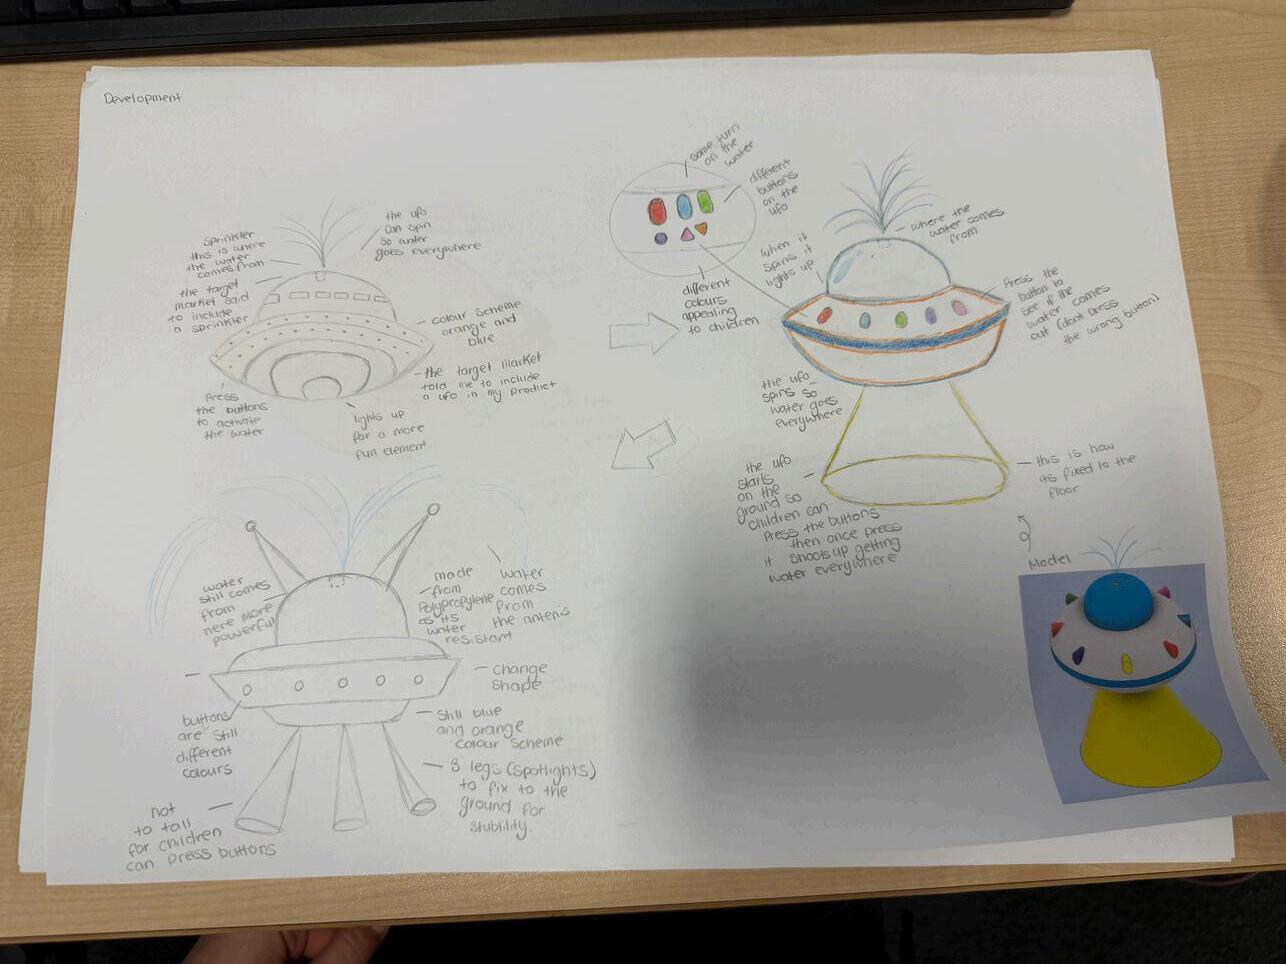 Development
sprinkler
this is where
the water
comes from
the target
market said
to include
a sprinkler
the ufo
can spin
so water
goes everywhere
colour scheme
orange and
blue
the target market
told me to include
a ufo in my product
Press
the buttons
to activate
the water
lights up
for a more
fun element
some turn
on the
water
different
buttons
on the
ufo
different
colours
appealing
to children
when it
spins it
lights up
where the
water comes
from
Press the
button to
see if the
water comes
out (dont press
the wrong button)
the ufo
spins so
water goes
everywhere
the ufo
starts
on the
ground so
children can
press the buttons
then once press
it shoots up getting
water everywhere
this is how
its fixed to the
floor
Model
water
still comes
from
here more
powerful
made
from
Polypropylene
as its
water
resistant
water
comes
from
the antenis
change
shape
buttons
are still
different
colours
Still blue
and orange
colour scheme
3 legs (spotlights)
to fix to the
ground for
stublility.
not
to tall
for children
can press buttons